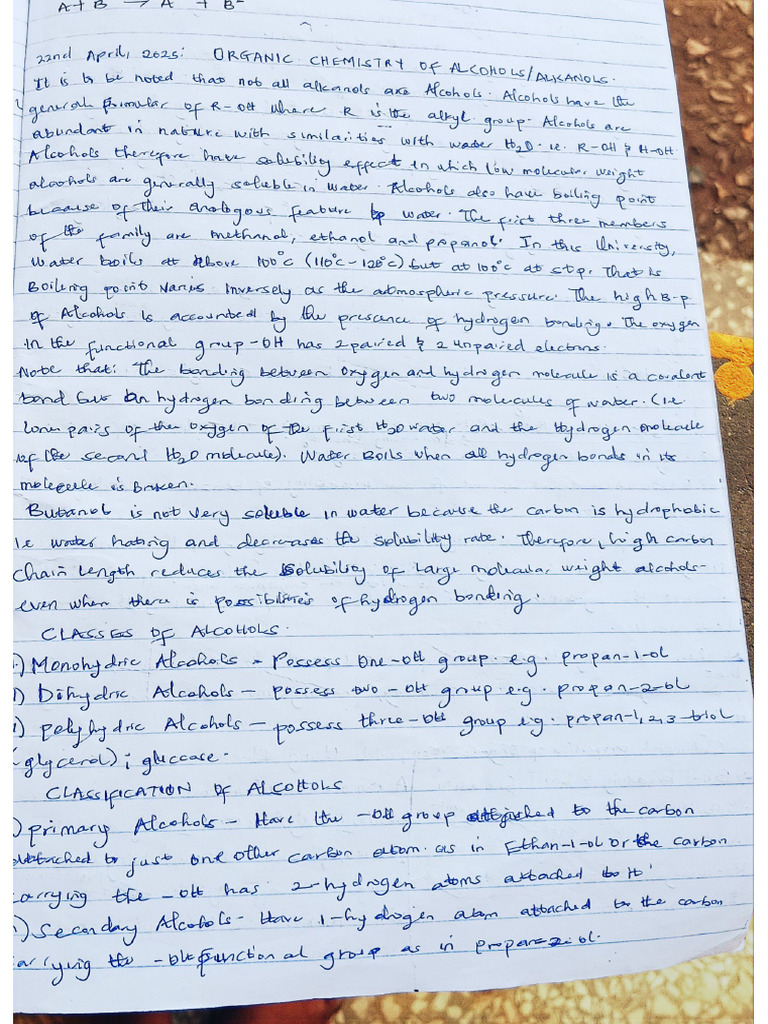 A + B → A + B-
22nd April, 2025: ORGANIC CHEMISTRY OF ALCOHOLS/ALKANOLS.
It is to be noted that not all alkanols are Alcohols. Alcohols have the
general formular of R-OH where R is the alkyl group. Alcohols are
abundant in nature with similarities with water H2O. i.e. R-OH & H-OH.
Alcohols therefore have solubility effect in which low molecular weight
alcohols are generally soluble in water. Alcohols also have boiling point
because of their analogous feature to water. The first three members
of the family are methanol, ethanol and propanol. In this University,
water boils at above 100°C (110°C-120°C) but at 100°C at stp. That is
Boiling point varies inversely as the atmospheric pressure. The high B.p
of Alcohols is accounted by the presence of hydrogen bonding. The oxygen
in the functional group -OH has 2 paired & 2 unpaired electrons.
Note that: The bonding between oxygen and hydrogen molecule is a covalent
bond but an hydrogen bonding between two molecules of water. (i.e
lone pairs of the oxygen of the first H2O water and the Hydrogen molecule
of the second H2O molecule). Water Boils when all hydrogen bonds in its
molecule is broken.
Butanol is not very soluble in water because the carbon is hydrophobic
i.e water hating and decreases the solubility rate. Therefore, high carbon
chain length reduces the solubility of large molecular weight alcohols
even when there is possibilities of hydrogen bonding.
CLASSES OF ALCOHOLS.
i) Monohydric Alcohols - Possess One -OH group. e.g. propan-1-ol
i) Dihydric Alcohols - possess two -OH group e.g. propan-2-ol
i) polyhydric Alcohols - possess three -OH group e.g. propan-1,2,3-triol
(glycerol); gluccose.
CLASSIFICATION OF ALCOHOLS
) primary Alcohols - Have the -OH group attached to the carbon
attached to just one other carbon atom as in Ethan-1-ol or the carbon
carrying the -OH has 2-hydrogen atoms attached to it.
i) Secondary Alcohols - Have 1-hydrogen atom attached to the carbon
carrying the -OH functional group as in propan-2-ol.